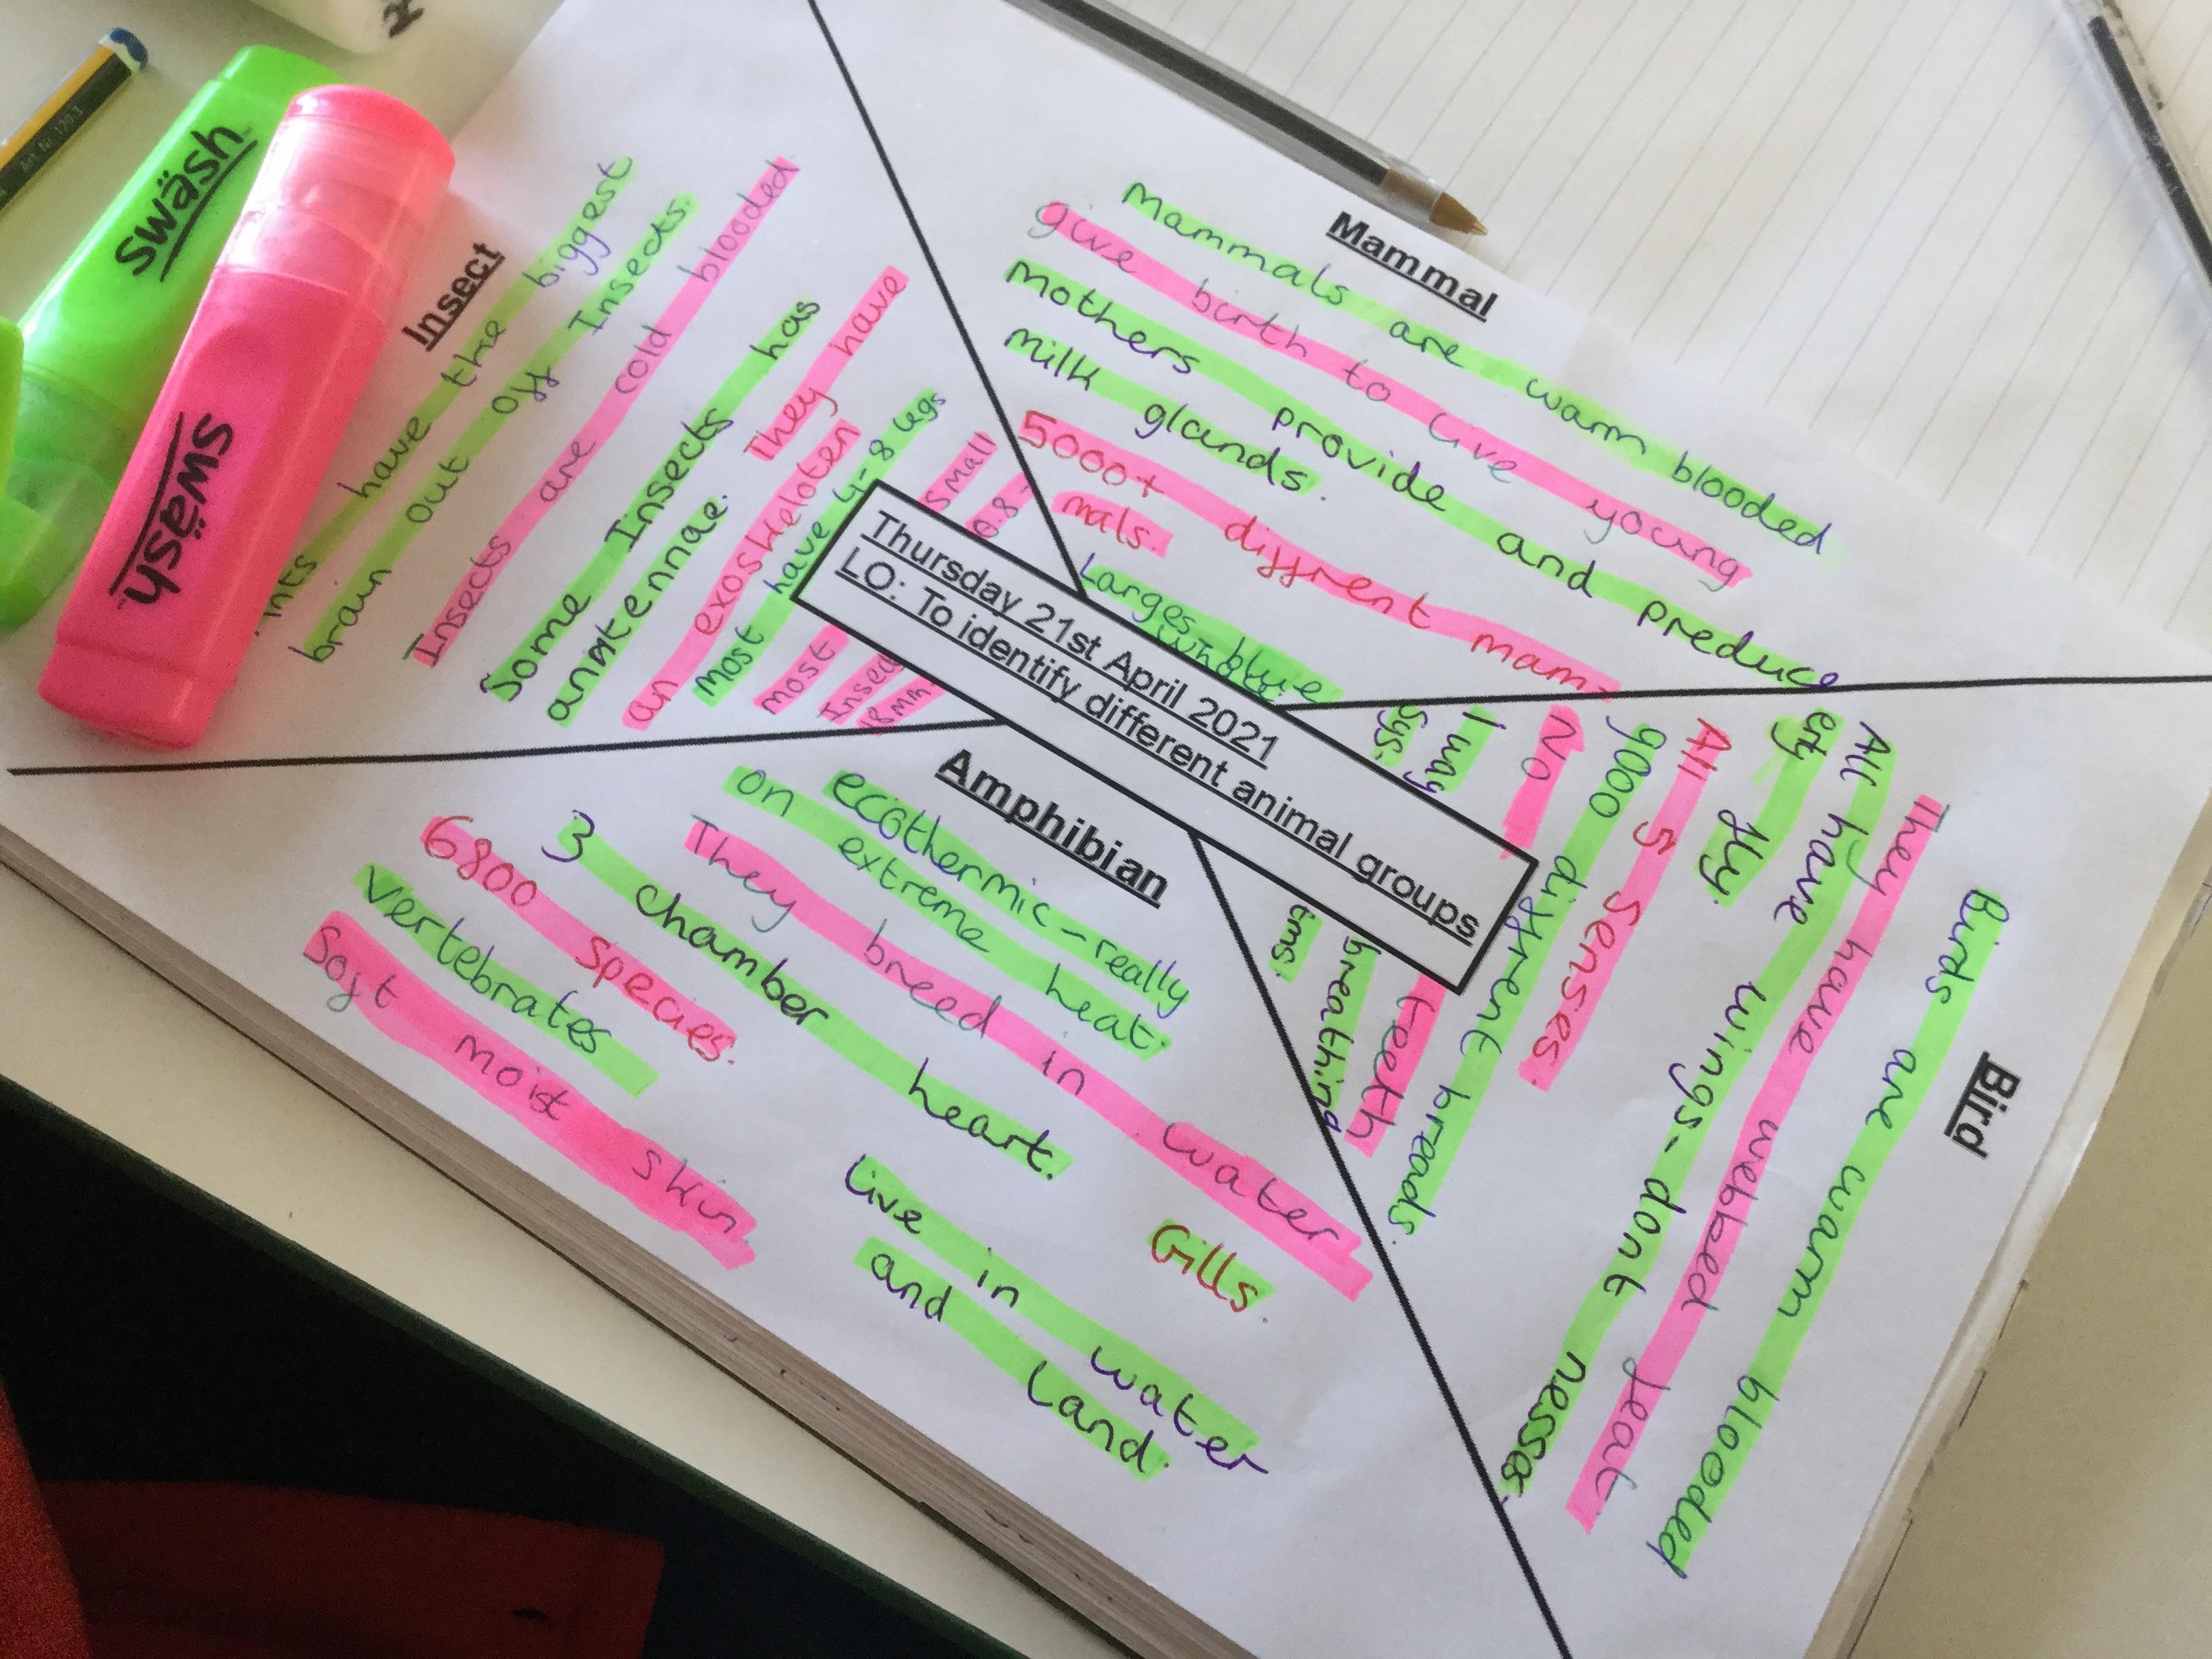 Thursday 21st April 2021
LO: To identify different animal groups
Mammal
Mammals are warm blooded
give birth to live young
Mothers provide and preduce
milk glands.
5000+ diffrent mam-
mals.
Larges - blue
Bird
Birds are warm blooded
They have webbed feat
All have wings - dont nessas-
erly fly.
All 5 senses.
9000 diffrent breads.
No teeth
1 way breathing
sys tms.
Amphibian
ecothermic - really
on extreme heat.
They breed in water
3 chamber heart.
6800 species.
Vertebrates
Soft moist skin
Gills.
Live in water
and Land.
Insect
have the biggest
brain out off Insects.
Insects are cold blooded.
Some Insects has
They have
an exoskeloten
most have 4-8 legs
most small
0.8-
18mm
swäsh
swäsh